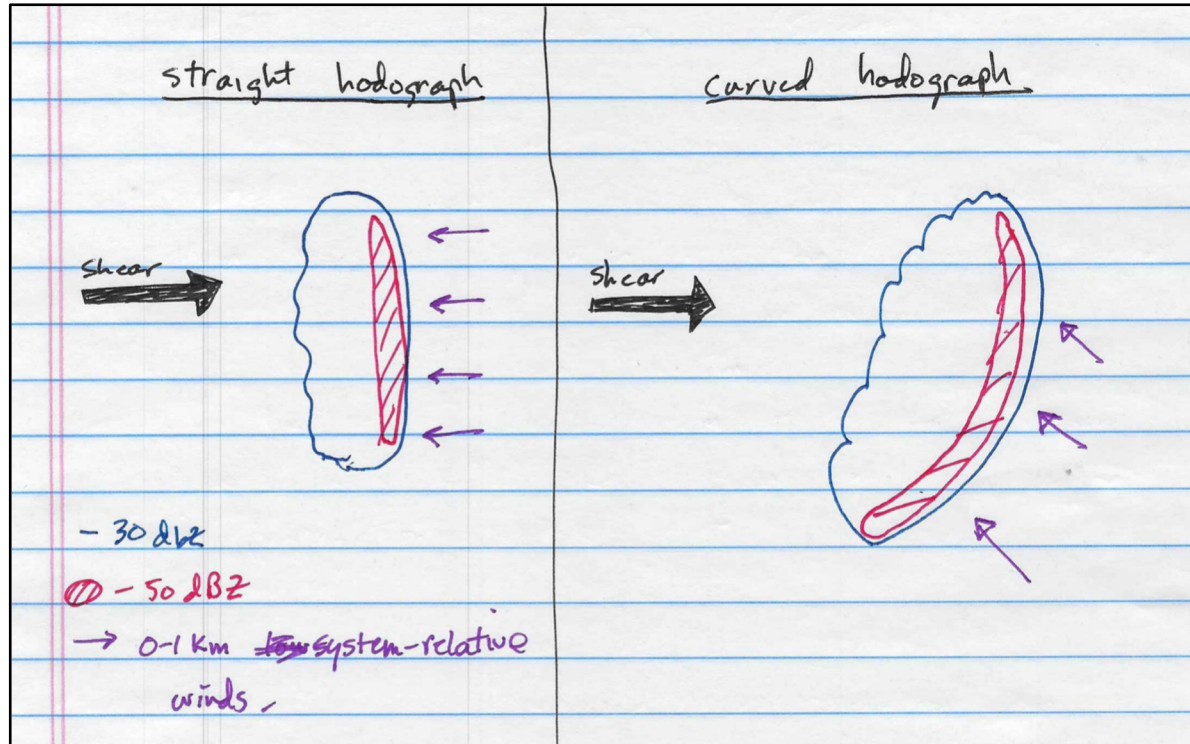 straight hodograph
shear
- 30 dbz
- 50 dBZ
→ 0-1 km system-relative
winds.
curved hodograph
shear